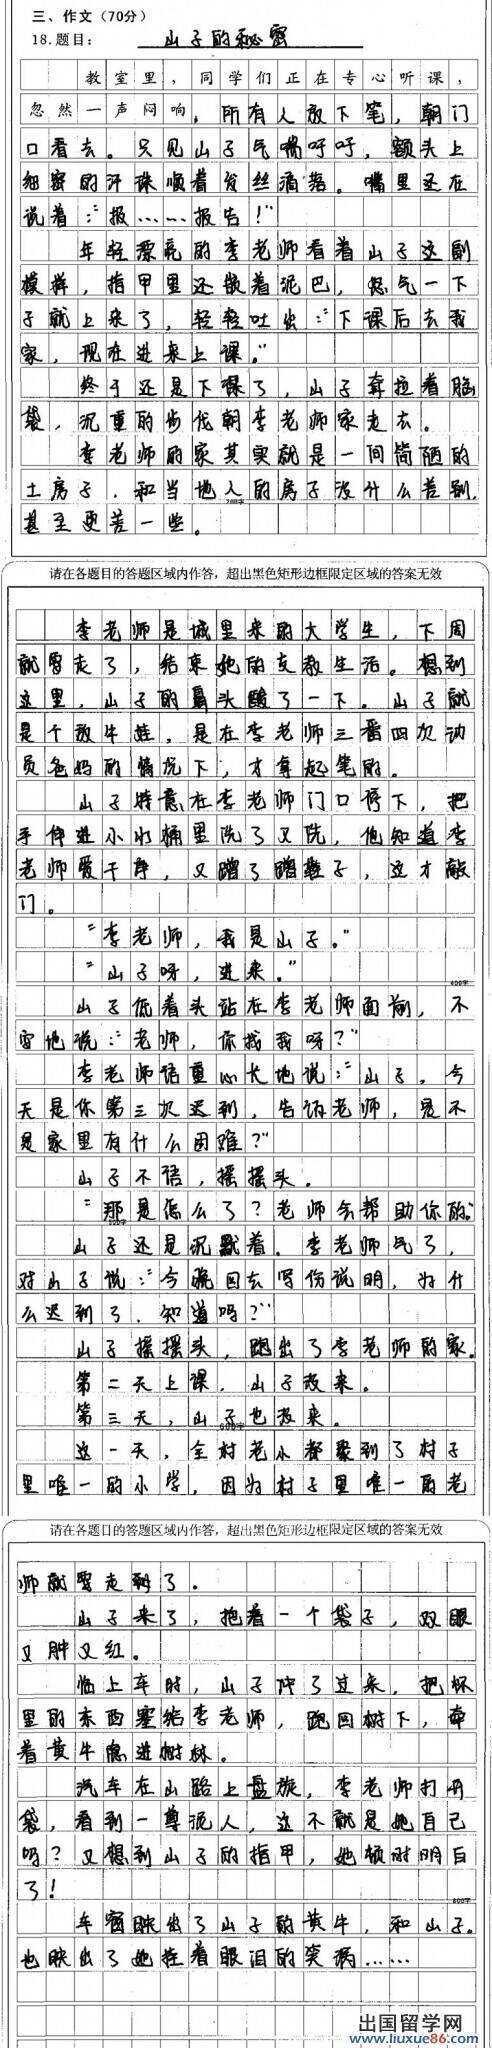 三、作文（70分）
18.题目：山子的秘密
教室里，同学们正在专心听课，
忽然一声闷响，所有人放下笔，朝门
口看去。只见山子气喘吁吁，额头上
细密的汗珠顺着发丝滴落。嘴里还在
说着：“报……报告！”
年轻漂亮的李老师看着山子这副
模样，指甲里还嵌着泥巴，怒气一下
子就上来了，轻轻吐出：“下课后去我
家，现在进来上课。”
终于还是下课了，山子耷拉着脑
袋，沉重的步伐朝李老师家走去。
李老师的家其实就是一间简陋的
土房子，和当地人的房子没什么差别，
200字
甚至更差一些。
请在各题目的答题区域内作答，超出黑色矩形边框限定区域的答案无效
李老师是城里来的大学生，下周
就要走了，结束她的支教生活。想到
这里，山子的鼻头酸了一下。山子就
是个放牛娃，是在李老师三番四次动
员爸妈的情况下，才拿起笔的。
山子特意在李老师门口停下，把
手伸进小水桶里洗了又洗，他知道李
老师爱干净，又蹭了蹭鞋子，这才敲
门。
“李老师，我是山子。”
“山子呀，进来。”
400字
山子低着头站在李老师面前，不
安地说：“老师，你找我呀？”
李老师语重心长地说：“山子，今
天是你第三次迟到，告诉老师，是不
是家里有什么困难？”
山子不语，摇摇头。
“那是怎么了？老师会帮助你的。”
山子还是沉默着。李老师气了，
对山子说：“今晚回去写份说明，为什
么迟到了，知道吗？”
山子摇摇头，跑出了李老师的家。
第二天上课，山子没来。
第三天，山子也没来。
600字
这一天，全村老小都聚到了村子
里唯一的小学，因为村子里唯一的老
请在各题目的答题区域内作答，超出黑色矩形边框限定区域的答案无效
师就要走了。
山子来了，抱着一个袋子，双眼
又肿又红。
临上车时，山子冲了过来，把怀
里的东西塞给李老师，跑回树下，牵
着黄牛隐进树林。
汽车在山路上盘旋，李老师打开
袋，看到一尊泥人，这不就是她自己
吗？又想到山子的指甲，她顿时明白
了！
800字
车窗映出了山子的黄牛，和山子。
也映出了她挂着眼泪的笑涡……
出国留学网
www.liuxue86.com